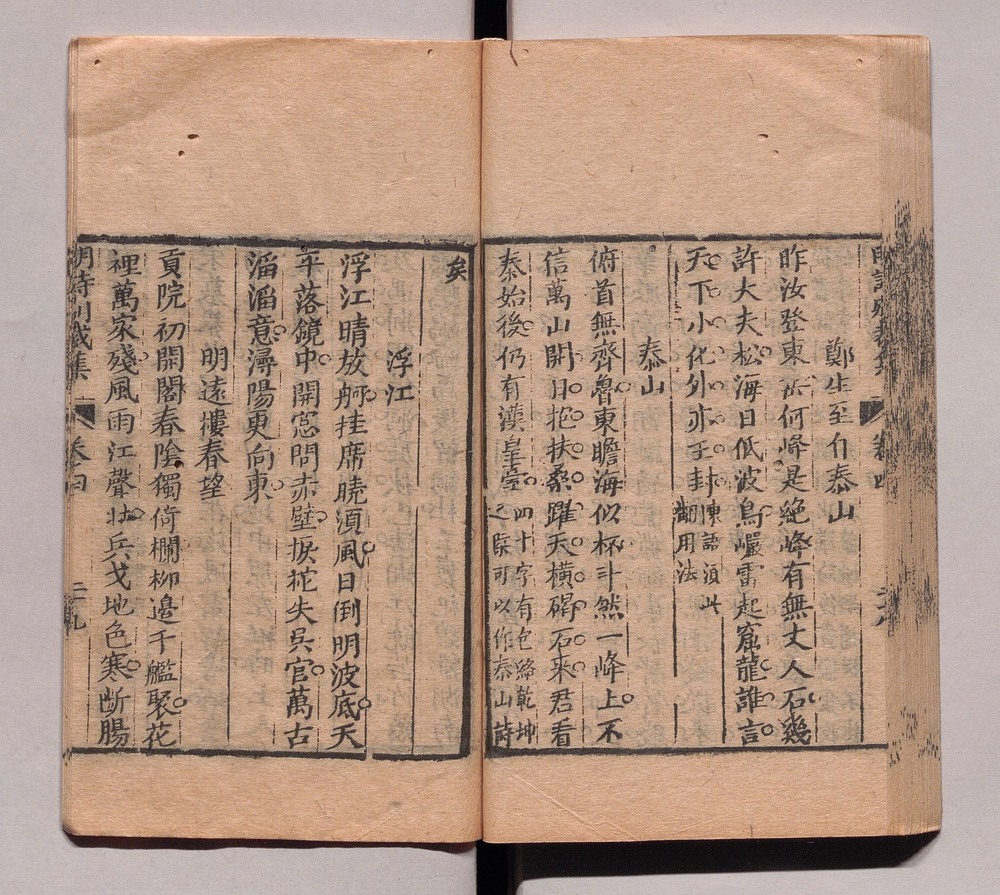 鄭生至自泰山
昨汝登東岱何峰是絶峰有無丈人石幾
許大夫松海日低波鳥巖雷起窟龍誰言
天下小化外亦王封
陳語須此
翻用法
泰山
俯首無齊魯東瞻海似杯斗然一峰上不
信萬山開日抱扶桑躍天橫碣石來君看
秦始後仍有漢皇臺
四十字有包絡乾坤
之槩可以作泰山詩
矣
浮江
浮江晴放舸挂席曉須風日倒明波底天
平落鏡中開窓問赤壁捩柁失吳官萬古
滔滔意潯陽更向東
明遠樓春望
貢院初開閣春陰獨倚欄柳邊千艦聚花
裡萬家殘風雨江聲壯兵戈地色寒斷腸
卷四